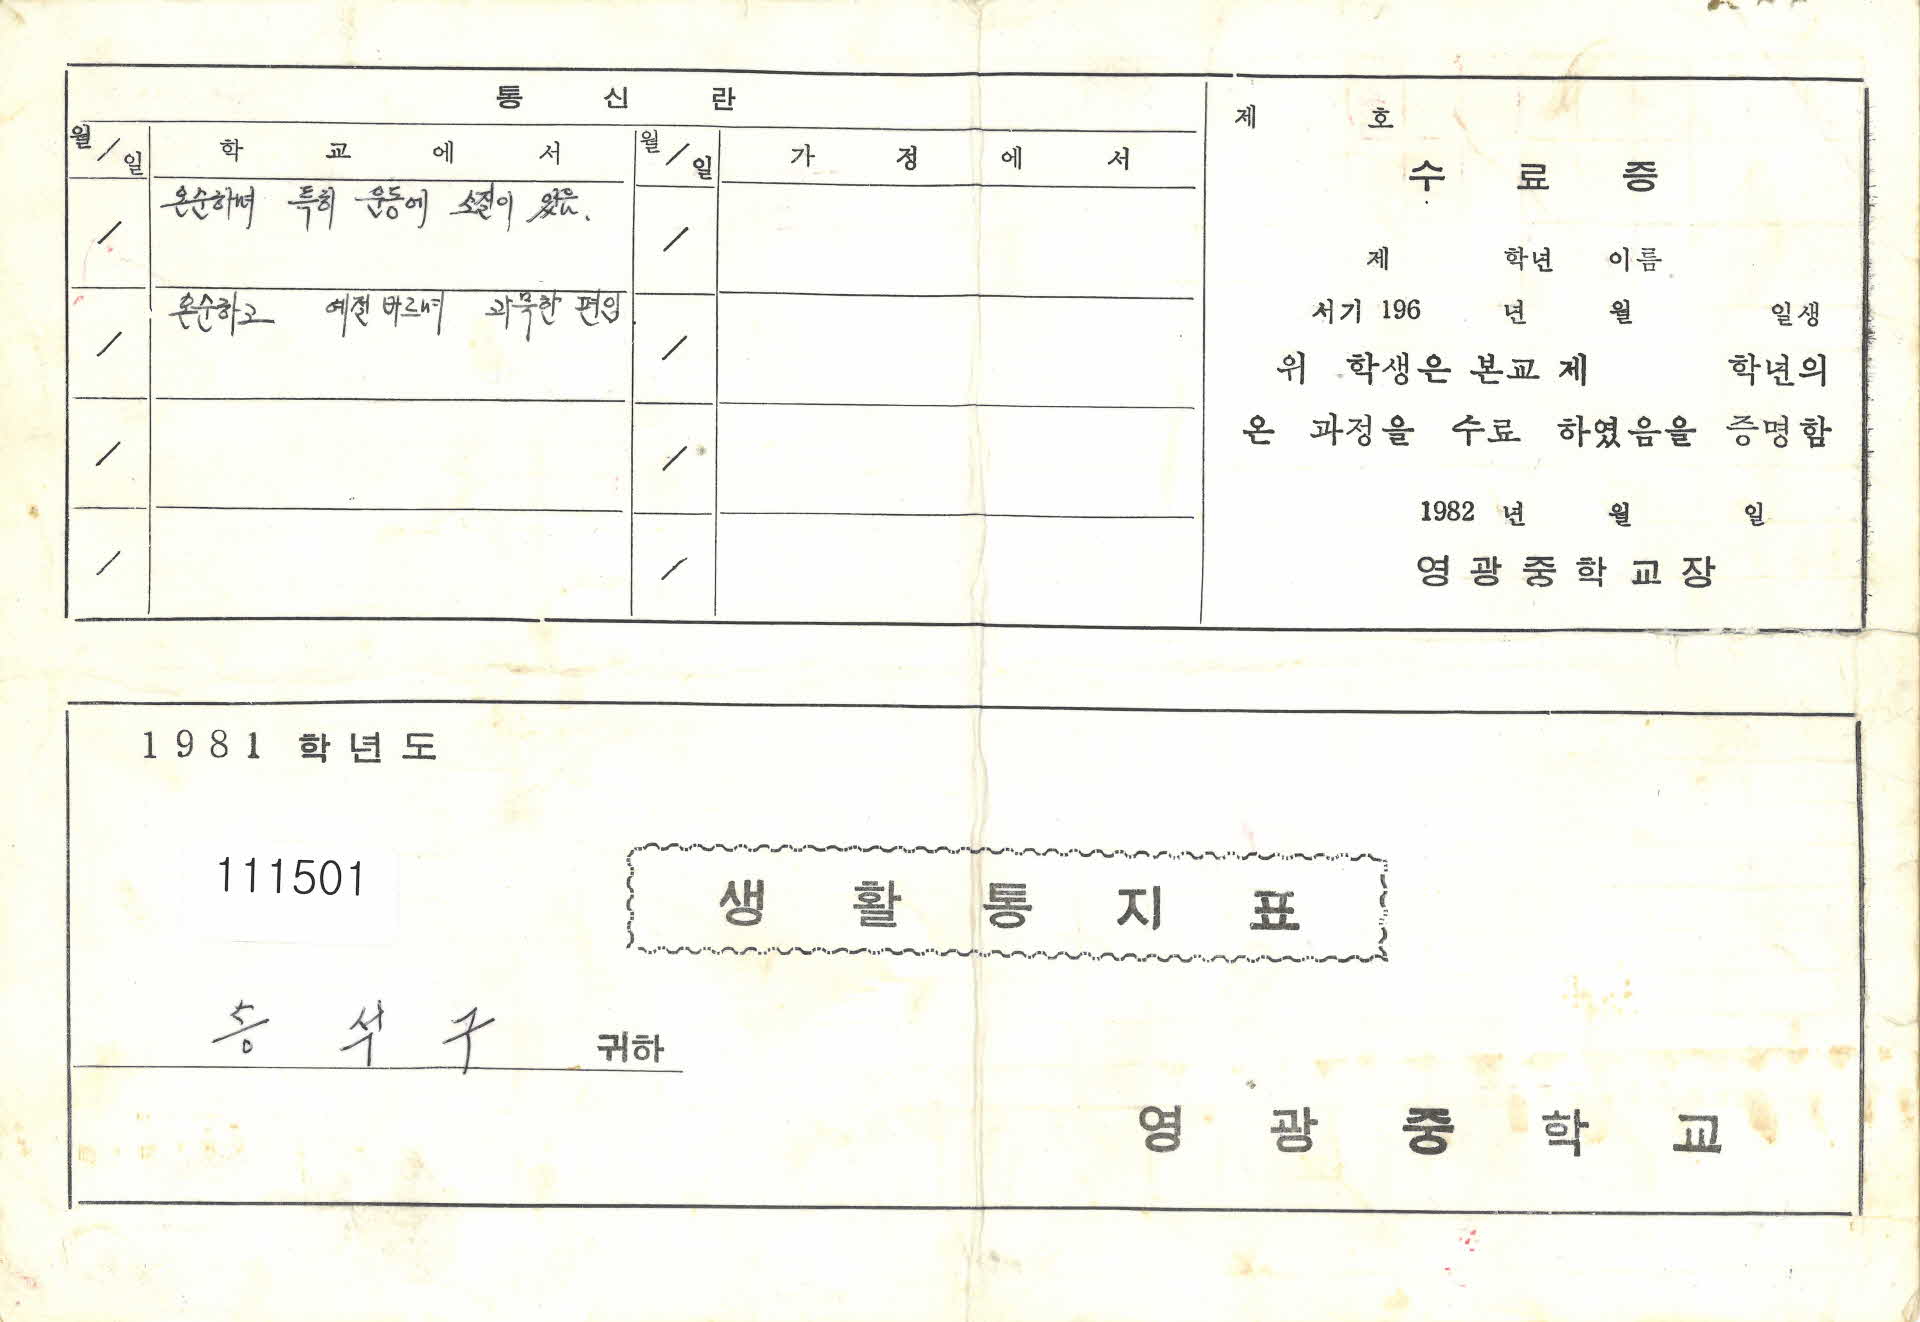 통 신 란
월/일 학 교 에 서 월/일 가 정 에 서
/ 온순하며 특히 운동에 소질이 있음. /
/ 온순하고 예절 바르며 과묵한 편임 /
/ /
/ /
제 호
수 료 증
제 학년 이름
서기 196 년 월 일생
위 학생은 본교 제 학년의
온 과정을 수료 하였음을 증명함
1982 년 월 일
영광중학교장
1981 학년도
111501
생 활 통 지 표
송 석 구 귀하
영 광 중 학 교